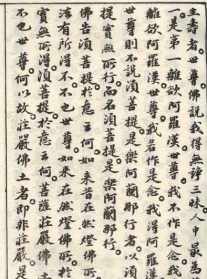 生壽者。世尊。佛說我得無諍三昧。人中最為
一。是第一離欲阿羅漢。世尊。我不作是念。我
離欲阿羅漢。世尊。我若作是念。我得阿羅
世尊則不說須菩提是樂阿蘭那行者。以須
提實無所行。而名須菩提是樂阿蘭那行。
佛告須菩提。於意云何。如來昔在然燈佛所。
法有所得不。不也。世尊。如來在然燈佛所。於
實無所得。須菩提。於意云何。菩薩莊嚴佛土
不也。世尊。何以故。莊嚴佛土者。即非莊嚴。是